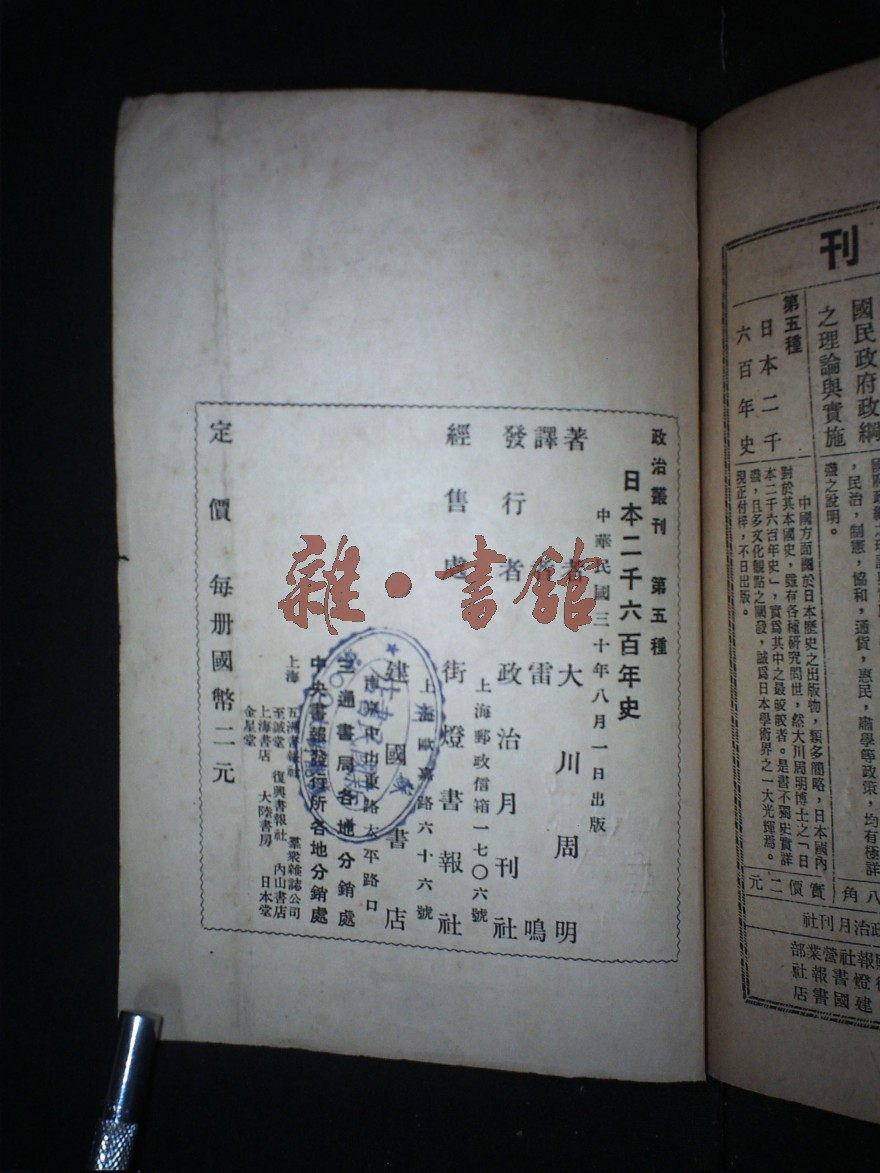 刊
國民政府政綱
之理論與實施
，民治，制憲，協和，通貨，惠民，肅學等政策，均有極詳
盡之說明。
第五種
日本二千
六百年史
中國方面關於日本歷史之出版物，類多簡略，日本國內
對於其本國史，雖有各種研究問世，然大川周明博士之「日
本二千六百年史」，實爲其中之最皎皎者。是書不獨史實詳
盡，且多文化觀點之闡發，誠爲日本學術界之一大光輝焉。
現正付梓，不日出版。
八角
實價二元
政治月刊社
政治叢刊 第五種
日本二千六百年史
中華民國三十年八月一日出版
著者 大川周明
譯者 雷鳴
發行者 政治月刊社
上海郵政信箱一七〇六號
經售處 街燈書報社
上海歐嘉路六十六號
建國書店
南京中山東路太平路口
三通書局各地分銷處
中央書報發行所各地分銷處
上海 五洲書報社 羣衆雜誌公司
至誠堂 復興書報社 內山書店
上海書店 大陸書房 日本堂
金星堂
定價 每册國幣二元
雜·書館